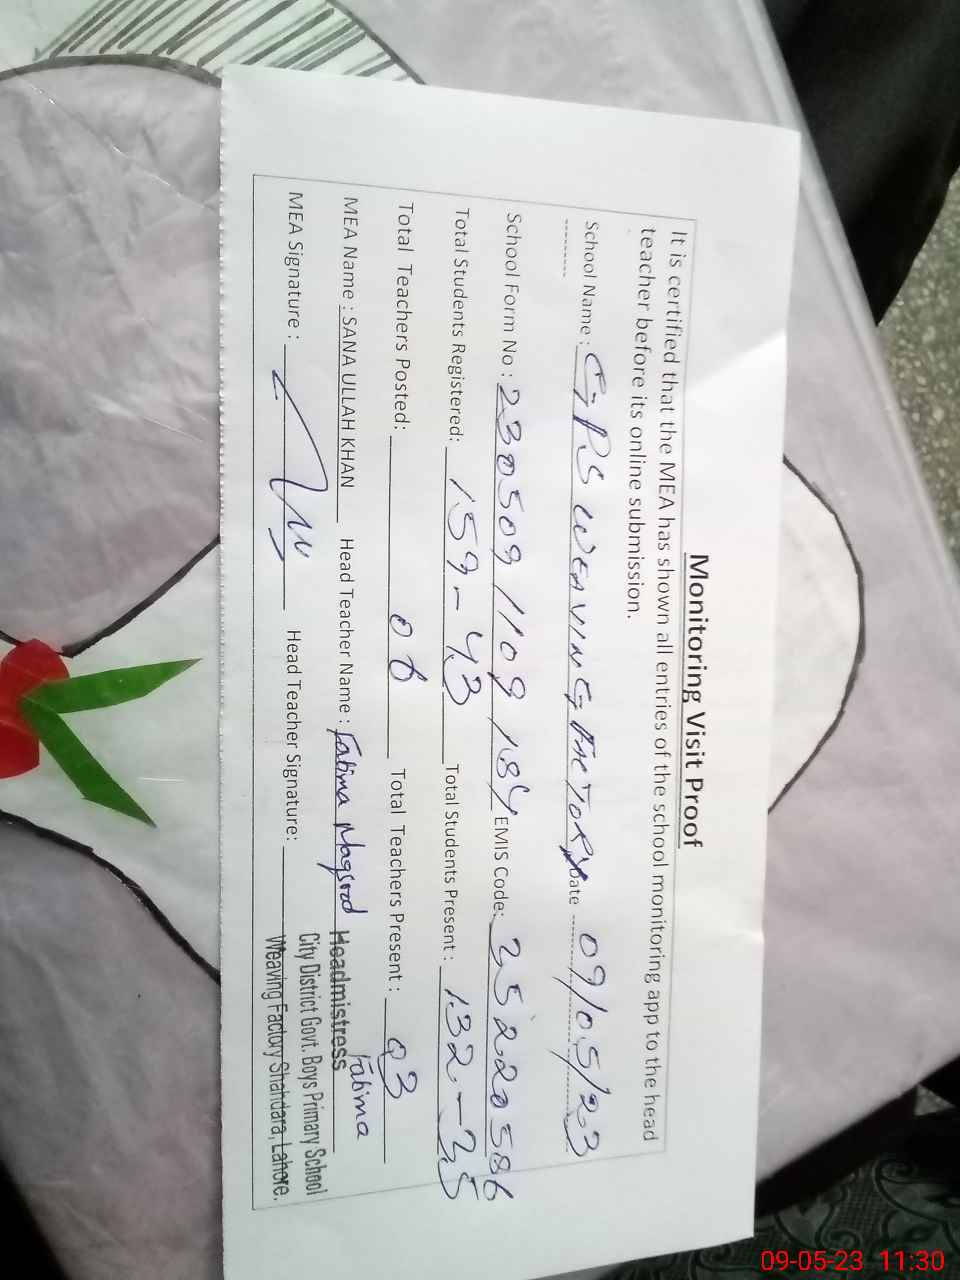 Monitoring Visit Proof
It is certified that the MEA has shown all entries of the school monitoring app to the head
teacher before its online submission.
School Name : GPS WEAVING FACTORY Date 09/05/23
School Form No : 230509/109/184 EMIS Code: 35220586
Total Students Registered: 159-43 Total Students Present : 132-35
Total Teachers Posted: 06 Total Teachers Present : 03
MEA Name : SANA ULLAH KHAN Head Teacher Name : Fatima Maqsood
MEA Signature : Head Teacher Signature: Fatima
Headmistress
City District Govt. Boys Primary School
Weaving Factory Shahdara, Lahore.
09-05-23 11:30